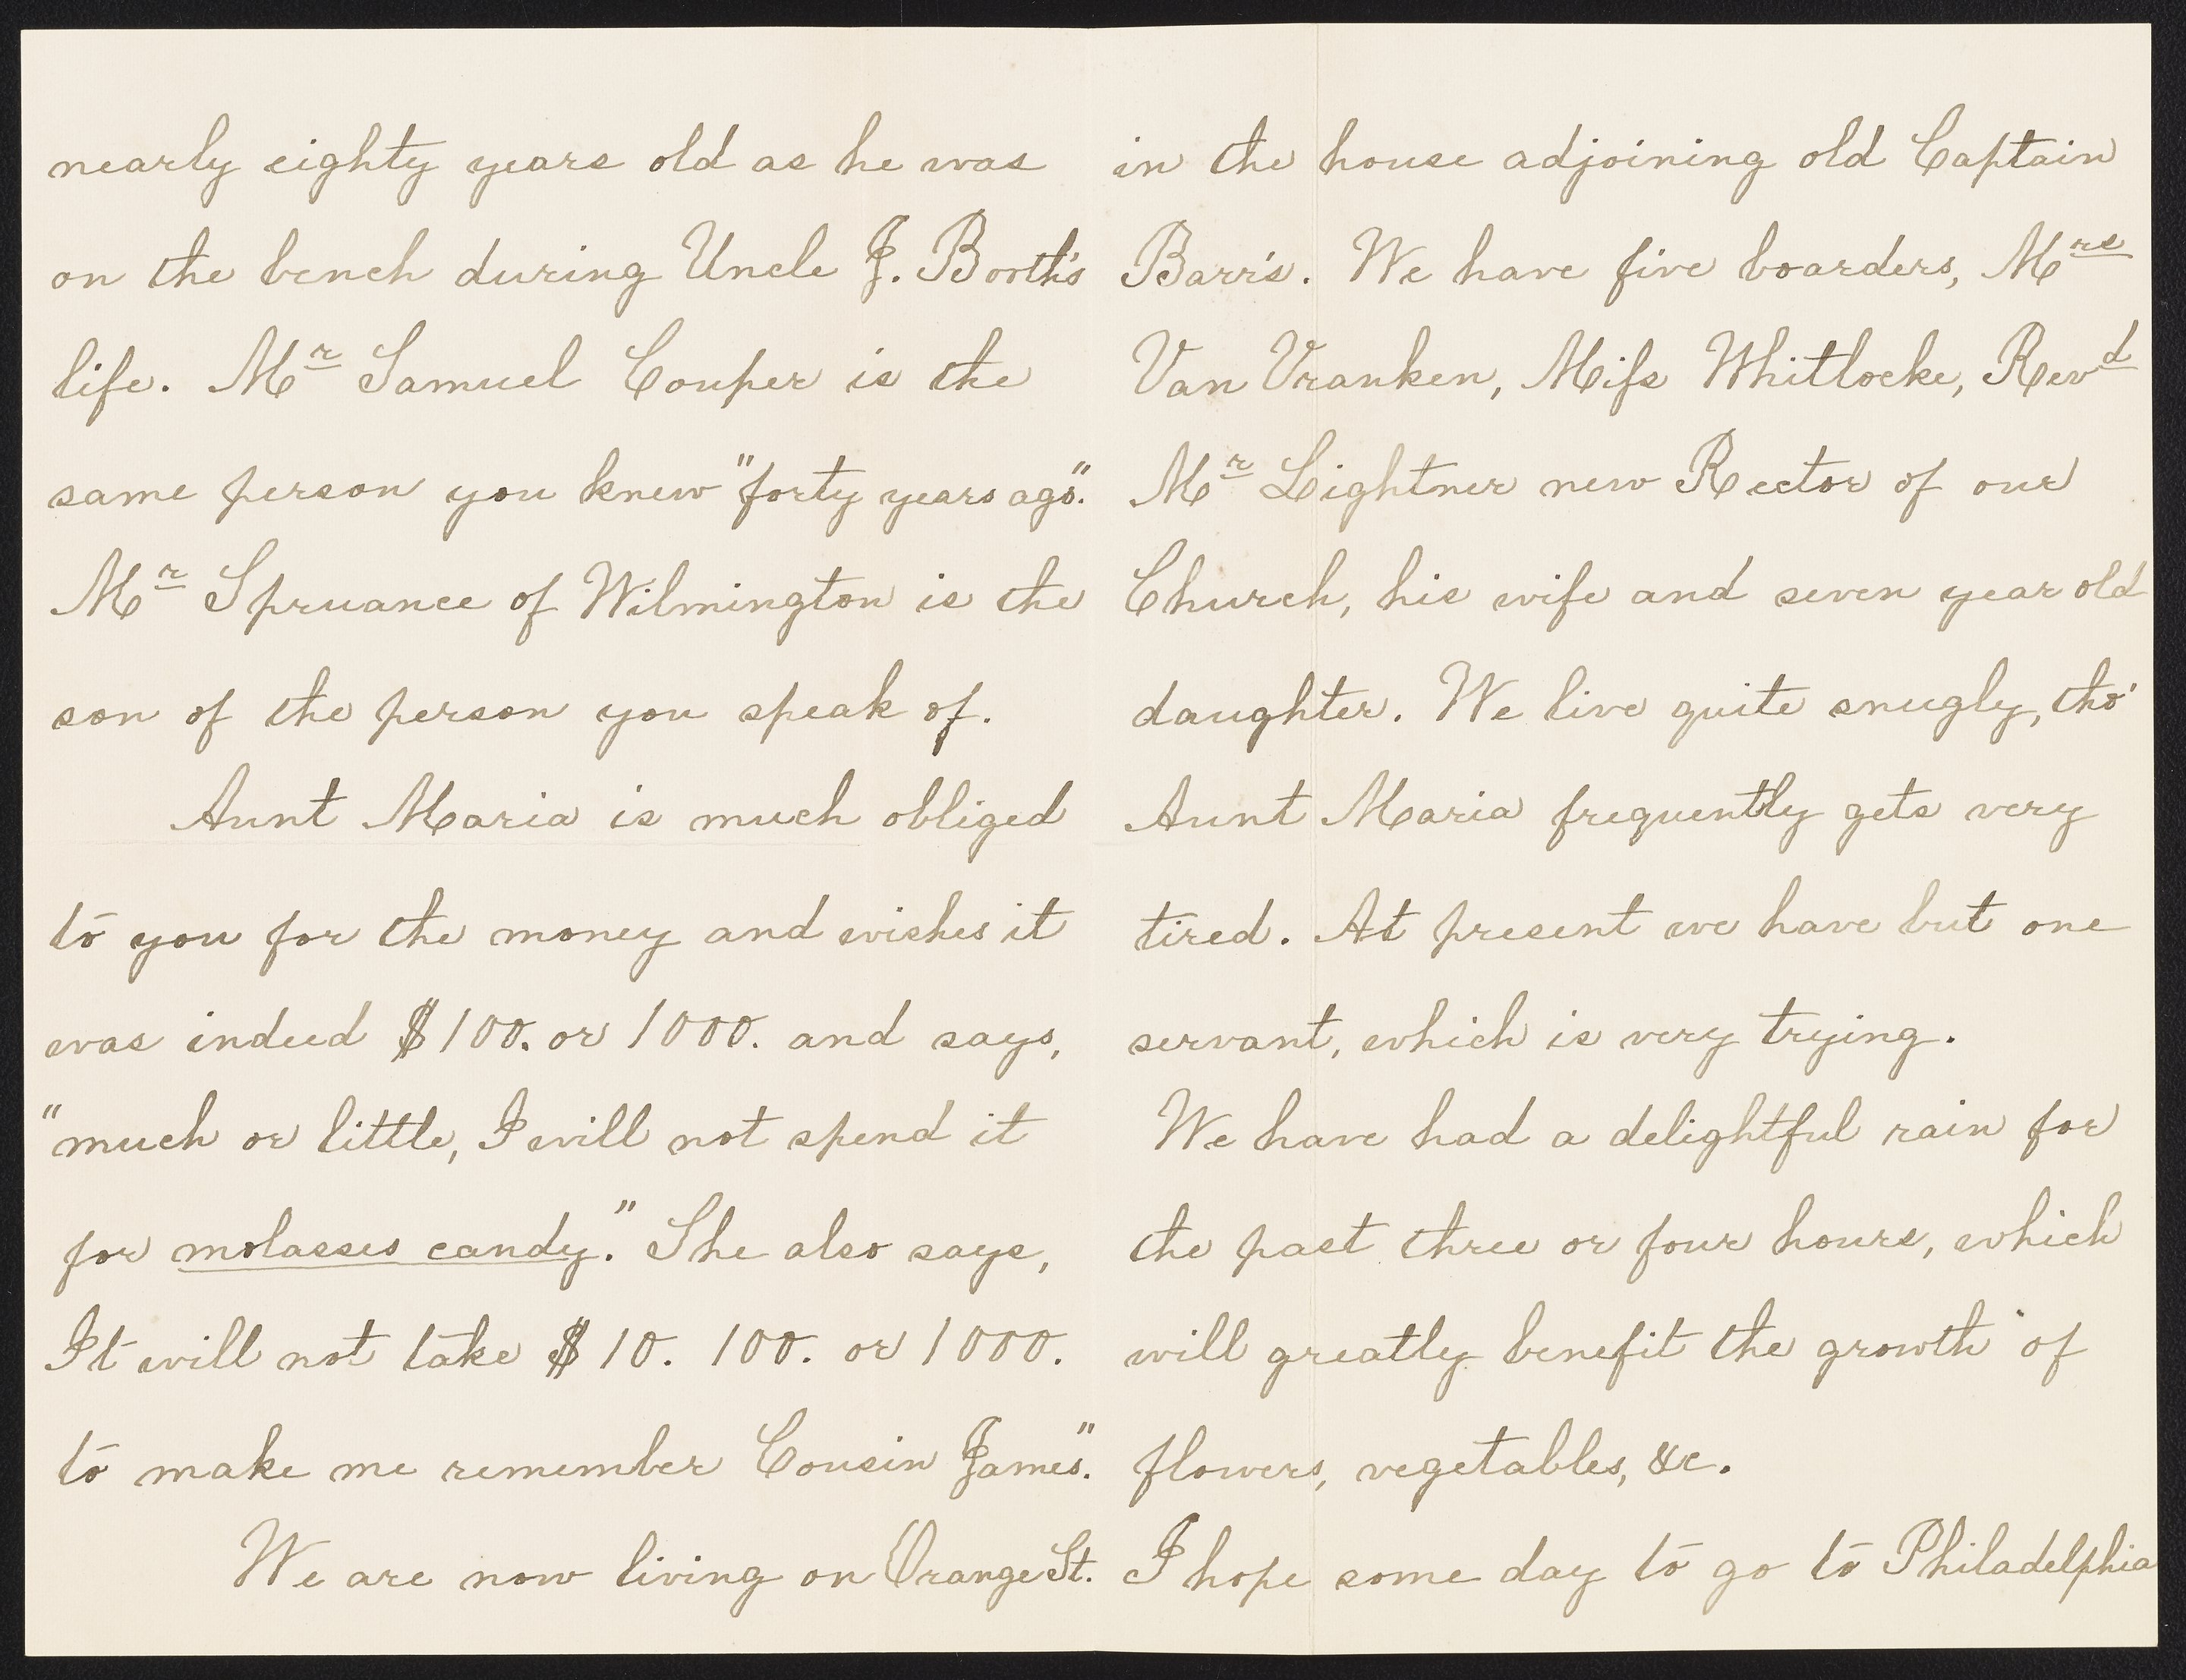 nearly eighty years old as he was
on the bench during Uncle J. Borth's
life. Mr Samuel Couper is the
same person you knew "forty years ago".
Mr Spruance of Wilmington is the
son of the person you speak of.
Aunt Maria is much obliged
to you for the money and wishes it
was indeed $100. or 1000. and says,
"much or little, I will not spend it
for molasses candy." She also says,
It will not take $10. 100. or 1000.
to make me remember Cousin James".
We are now living on Orange St.
in the house adjoining old Captain
Barr's. We have five boarders, Mrs
Van Vranken, Miss Whitlocke, Revd
Mr Lightner new Rector of our
Church, his wife and seven year old
daughter. We live quite snugly, tho'
Aunt Maria frequently gets very
tired. At present we have but one
servant, which is very trying.
We have had a delightful rain for
the past three or four hours, which
will greatly benefit the growth of
flowers, vegetables, &c.
I hope some day to go to Philadelphia